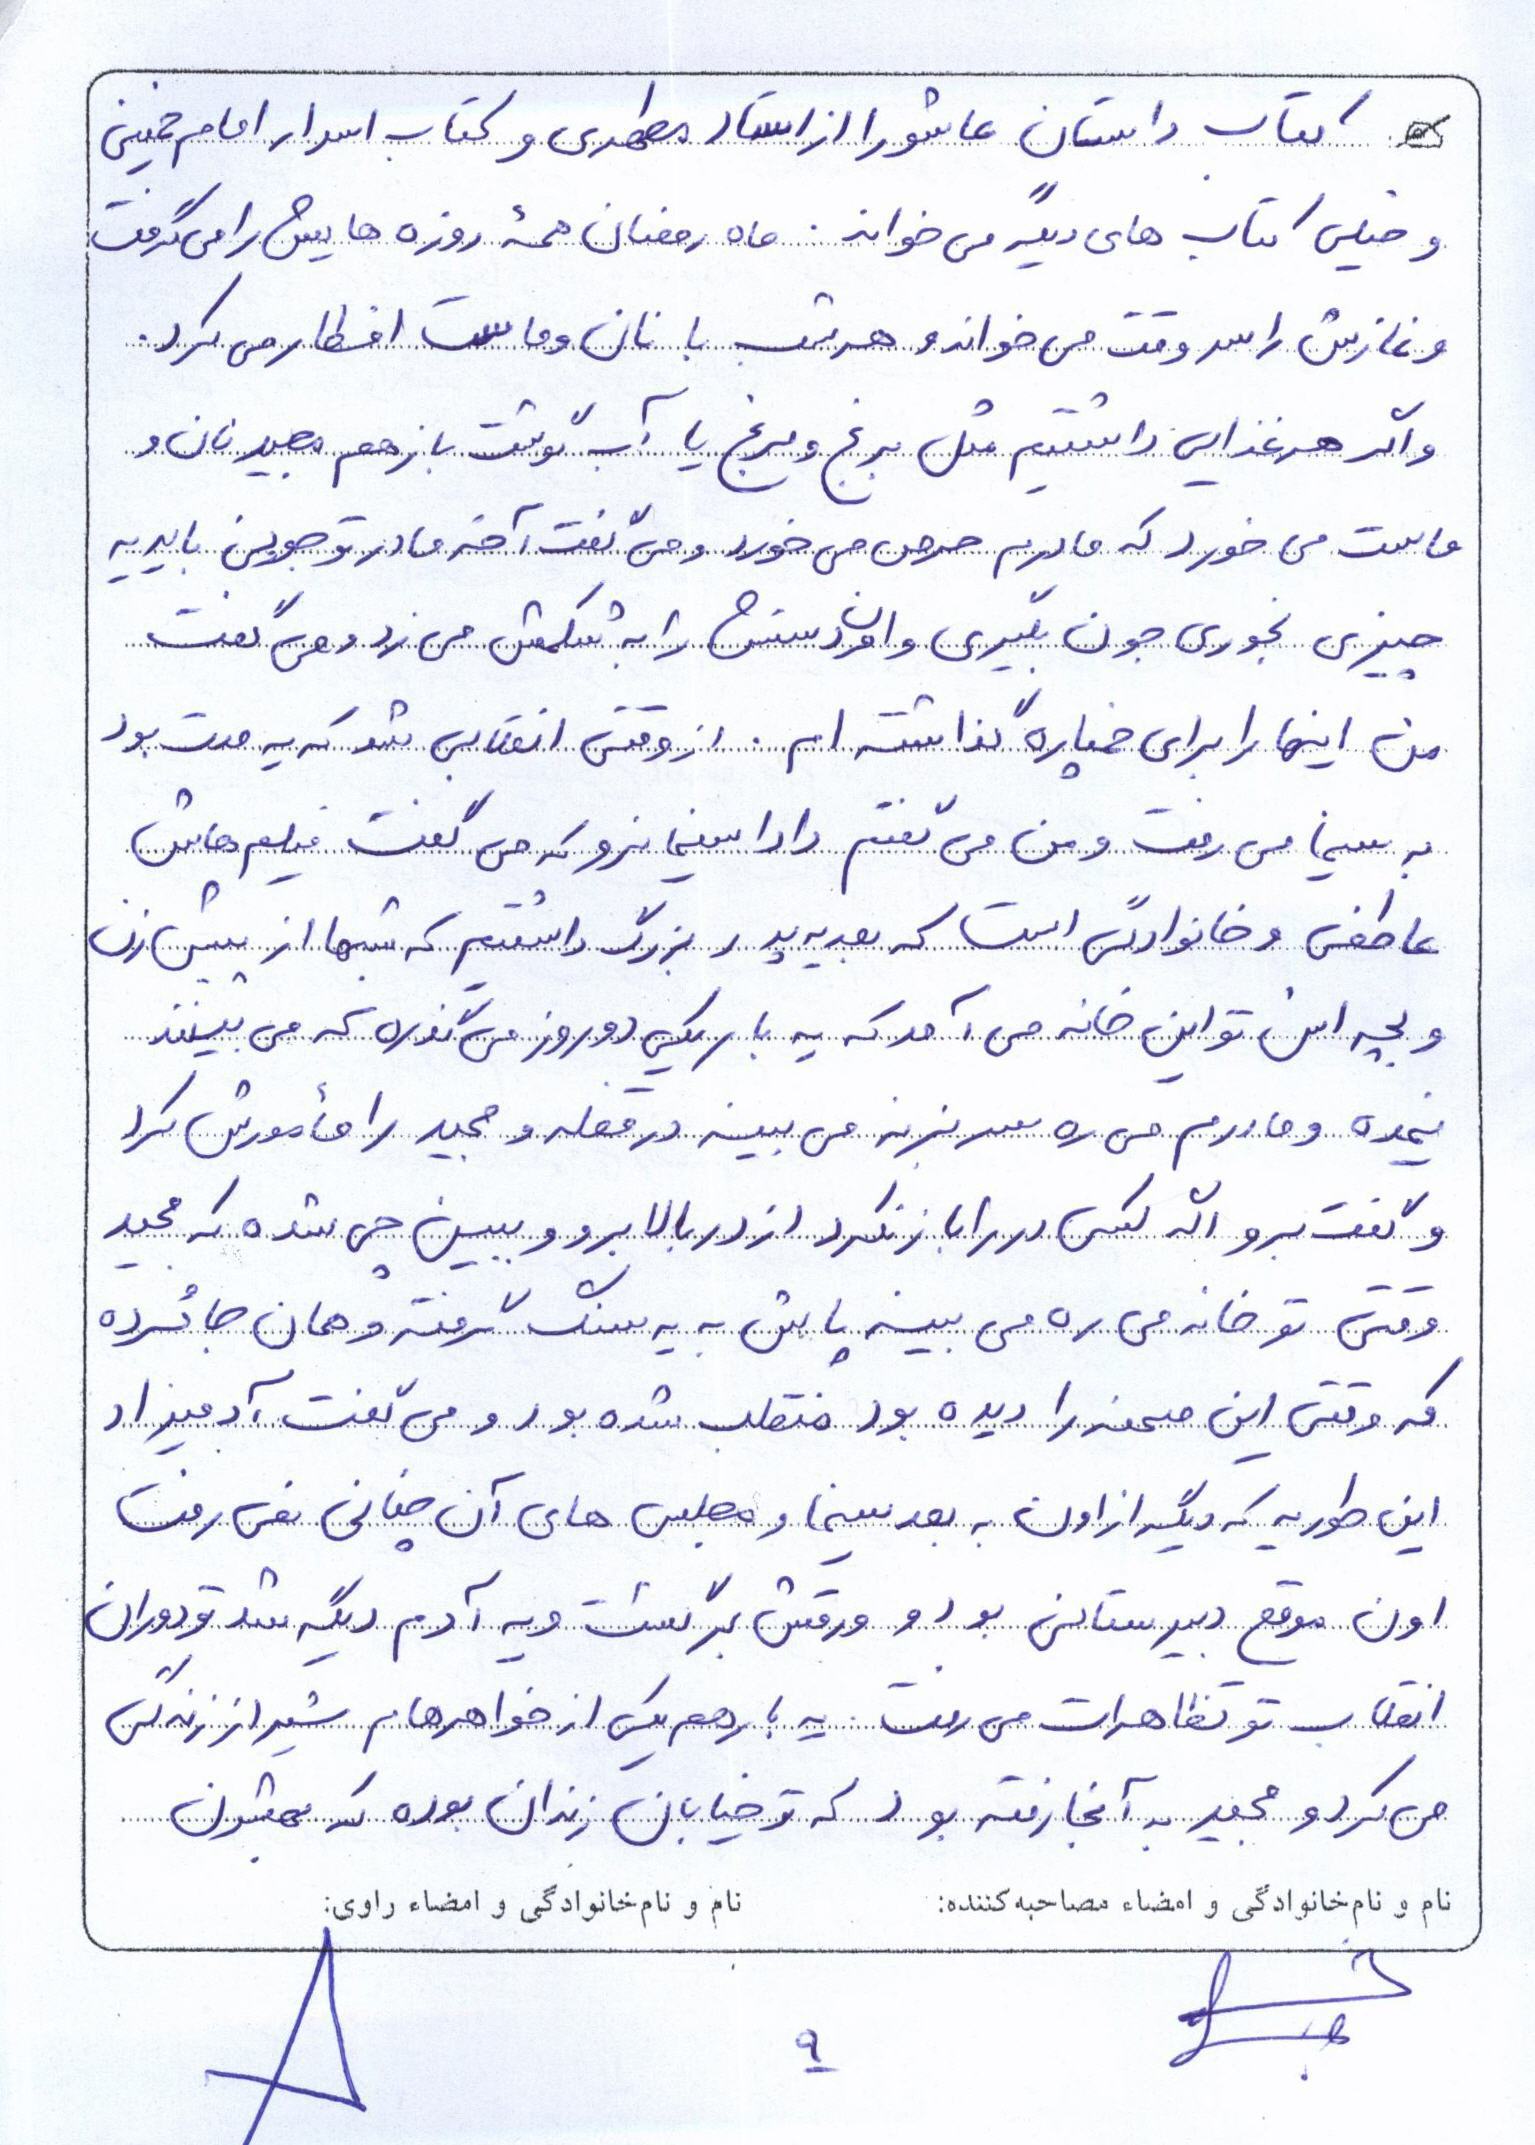 کتاب داستان عاشورا از استاد مطهری و کتاب اسرار امام خمینی
و خیلی کتاب های دیگر می خواند . ماه رمضان همهٔ روزه هایش را می گرفت
و نمازش را سر وقت می خواند و هر شب با نان و ماست افطار می کرد.
و اگر هر غذایی داشتیم مثل برنج و مرغ یا آب گوشت باز هم مجید نان و
ماست می خورد که مادرم حرص می خورد و می گفت آخه مادر تو جوونی باید یه
چیزی بخوری جون بگیری و اون دستش را به شکمش می زد و می گفت
من اینها را برای خمپاره گذاشته ام . از وقتی انقلابی شد که یه مدت بود
به سینما می رفت و من می گفتم دادا سینما نرو که می گفت فیلم هاش
عاطفی و خانوادگی است که بعد یه پدر بزرگ داشتیم که شبها از پیش زن
و بچه اش تو این خانه می آمد که یه بار یکی دو روز می گذره که می بینند
نیمده و مادرم می ره سر بزنه می بینه در قفله و مجید را مأمورش کرد
و گفت برو اگه کسی در را باز نکرد از در بالا برو و ببین چی شده که مجید
وقتی تو خانه می ره می بینه پایش به یه سنگ گرفته و همان جا مُرده
که وقتی این صحنه را دیده بود منقلب شده بود و می گفت آدمیزاد
این طوریه که دیگر از اون به بعد سینما و مجلس های آن چنانی نمی رفت
اون موقع دبیرستانی بود و ورقش برگشت و یه آدم دیگه شد تو دوران
انقلاب تو تظاهرات می رفت . یه بار هم یکی از خواهرهام شیراز زندگی
می کرد و مجید به آنجا رفته بود که تو خیابان زندان بوده که بهشون
نام و نام‌خانوادگی و امضاء مصاحبه‌کننده: نام و نام‌خانوادگی و امضاء راوی:
۹